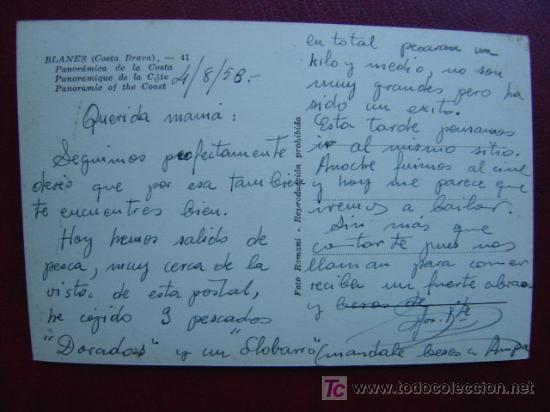 BLANES (Costa Brava). — 41
Panorámica de la Costa
Panoramique de la Côte
Panoramic of the Coast
4/8/58.-
Querida mamá:
Seguimos perfectamente
deseo que por esa tambien
te encuentres bien.
Hoy hemos salido de
pesca, muy cerca de la
vista de esta postal,
he cojido 9 pescados
"Dorados" y un "Llobarro"
en total pesaran un
kilo y medio, no son
muy grandes pero ha
sido un exito.
Esta tarde pensamos
ir al mismo sitio.
Anoche fuimos al cine
y hoy me parece que
iremos a bailar.
Sin más que
contarte pues nos
llaman para comer
reciba un fuerte abrazo
y besos de
(mandale besos a
Foto Romani - Reproducción prohibida
TC
todocoleccion